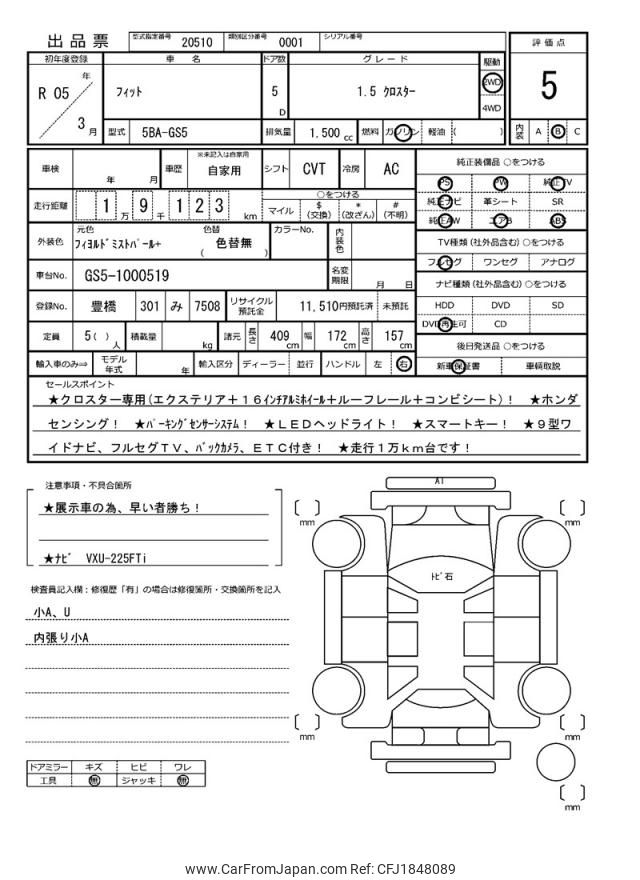 出品票 型式指定番号 20510 類別区分番号 0001 シリアル番号
評価点
5
内装 A B C
初年度登録 車名 ドア数 グレード 駆動
R 05 年 3 月 フィット 5 D 1.5 クロスター 2WD 4WD
型式 5BA-GS5 排気量 1.500 cc 燃料 ガソリン 軽油 ( )
車検 年 月 車歴 ※未記入は自家用 自家用 シフト CVT 冷房 AC
走行距離 1 万 9 千 1 2 3 km ○をつける
マイル $ (交換) * (改ざん) # (不明)
外装色 元色 フィヨルドミストパール+ 色替 ( 色替無 ) カラーNo. 内装色
車台No. GS5-1000519 名変期限 月 日
登録No. 豊橋 301 み 7508 リサイクル預託金 11,510円預託済 未預託
定員 5( ) 人 積載量 kg 諸元 長さ 409 cm 幅 172 cm 高さ 157 cm
輸入車のみ⇒ モデル年式 年 輸入区分 ディーラー 並行 ハンドル 左 右
純正装備品 ○をつける
PS PW 純正TV
純正ナビ 革シート SR
純正AW エアB ABS
TV種類 (社外品含む) ○をつける
フルセグ ワンセグ アナログ
ナビ種類 (社外品含む) ○をつける
HDD DVD SD
DVD再生可 CD
後日発送品 ○をつける
新車保証書 車輌取説
セールスポイント
★クロスター専用(エクステリア+16インチアルミホイール+ルーフレール+コンビシート)! ★ホンダ
センシング! ★パーキングセンサーシステム! ★LEDヘッドライト! ★スマートキー! ★9型ワ
イドナビ、フルセグTV、バックカメラ、ETC付き! ★走行1万km台です!
注意事項・不具合箇所
★展示車の為、早い者勝ち!
★ナビ VXU-225FTi
検査員記入欄：修復歴「有」の場合は修復箇所・交換箇所を記入
小A、U
内張り小A
ドアミラー キズ ヒビ ワレ
工具 無 ジャッキ 無
A1
トビ石
[ ] mm
[ ] mm
[ ] mm
[ ] mm
[ ] mm
www.CarFromJapan.com Ref: CFJ1848089